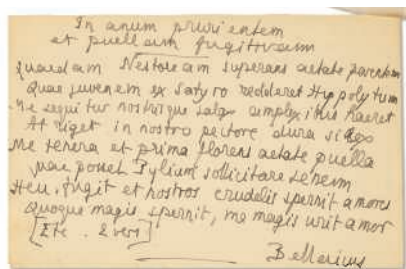 In anum prurientem
et puellam fugitivam
Quaedam Nestoream superans aetate parentem
Quae juvenem ex Satyro redderet Hyppolytum
Me sequitur nostrisque salax amplexibus haeret
At riget in nostro pectore dura silex
Me tenera et prima florens aetate puella
quae posset Pylium sollicitare senem
Heu, fugit et nostros crudelis spernit amores
Quoque magis spernit, me magis urit amor
[Etc. 2 vers]
Bellarius